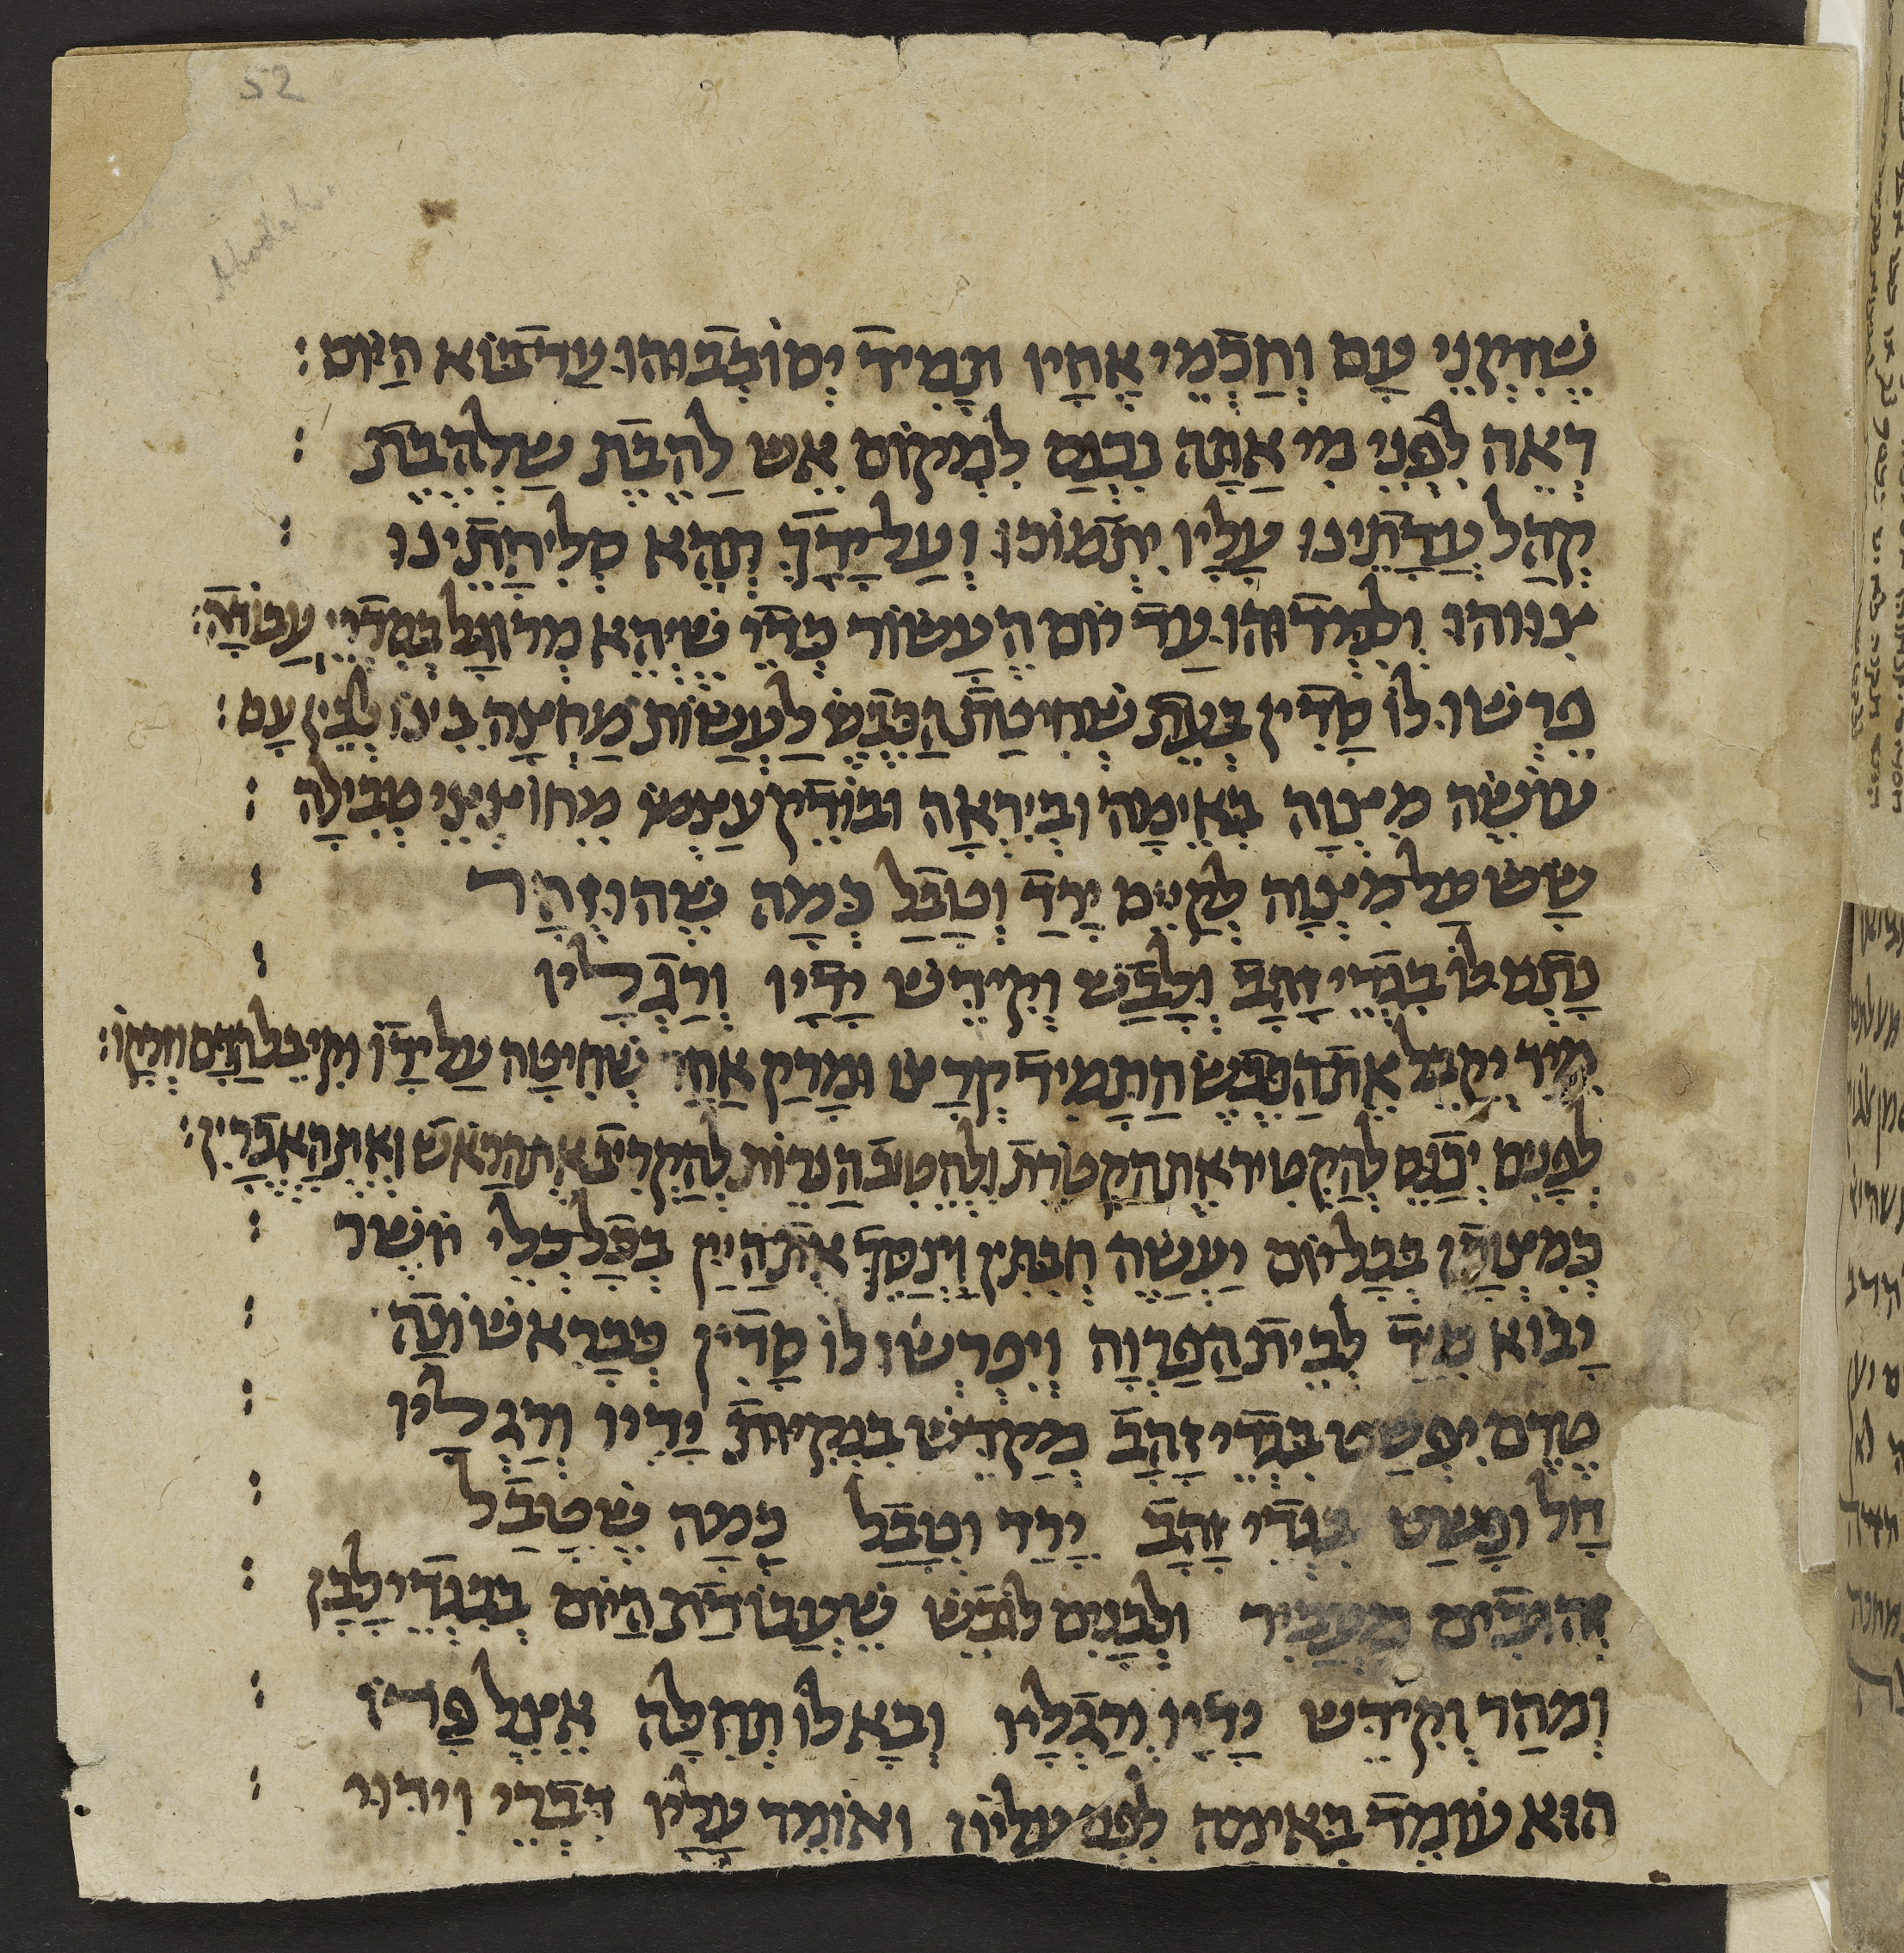 52
Abodah
שֶׁזִקְנֵי עָם וְחַכְמֵי אֶחָיו תָּמִיד יְסוֹבְבוּהוּ עַד בּוֹא הַיּוֹם :
רְאֵה לִפְנֵי מִי אַתָּה נִכְנַס לִמְקוֹם אֵשׁ לַהֶבֶת שַׁלְהֶבֶת :
קְהַל עֲדָתֵינוּ עָלֶיךָ יִתְמוֹכוּ וְעַל יָדְךָ תְּהֵא סְלִיחָתֵינוּ :
צִוּוּהוּ וְלִמְּדוּהוּ עַד יוֹם הֶעָשׂוֹר כְּדֵי שֶׁיְּהֵא מְרוּגָּל בְּסִדְרֵי עֲבוֹדָה :
פֵּרְשׂוּ לוֹ סָדִין בְּעֵת שְׁחִיטַת הַכֶּבֶשׂ לַעֲשׂוֹת מְחִצָּה בֵּינוֹ לְבֵין עָם :
עוֹשֶׂה מִצְוָה בְּאֵימָה וּבְיִרְאָה וּבוֹדֵק עַצְמוֹ מֵחוֹצְצֵי טְבִילָה :
שָׂשׂ עַל מִצְוָה לְקַיֵּם יָרַד וְטָבַל כְּמָה שֶׁהוּזְהַר :
נָתְנוּ לוֹ בִּגְדֵי זָהָב וְלָבַשׁ וְקִידֵּשׁ יָדָיו וְרַגְלָיו :
מִיַּד יְקַבֵּל אֶת הַכֶּבֶשׂ הַתָּמִיד קְרָצוֹ וּמָרַק אַחֵר שְׁחִיטָה עַל יָדוֹ וְקִיבֵּל הַדָּם וּזְרָקוֹ :
לִפְנִים יִכָּנֵס לְהַקְטִיר אֶת הַקְּטֹרֶת וּלְהֵטִיב הַנֵּרוֹת לְהַקְרִיב אֶת הָרֹאשׁ וְאֶת הָאֲבָרִין :
כְּמִצְוָתָן בְּכָל יוֹם יַעֲשֶׂה חֲבִתִּין וִינַסֵּךְ אֶת הַיַּיִן בְּכָל כְּלֵי שִׁיר :
יָבוֹא מִיַּד לְבֵית הַפַּרְוָה וְיִפְרְשׂוּ לוֹ סָדִין כְּבָרִאשׁוֹנָה :
טֶרֶם יִפְשֹׁט בִּגְדֵי זָהָב מְקַדֵּשׁ בִּנְקִיּוּת יָדָיו וְרַגְלָיו :
חָל וּפָשַׁט בִּגְדֵי זָהָב יָרַד וְטָבַל כְּמָה שֶׁטָּבַל :
זְהוּבִים מַעֲבִיר וּלְבָנִים לוֹבֵשׁ שֶׁעֲבוֹדַת הַיּוֹם בְּבִגְדֵי לָבָן :
וּמִהַר וְקִידֵּשׁ יָדָיו וְרַגְלָיו וּבָא לוֹ תְּחִלָּה אֵצֶל פָּרוֹ :
הוּא עוֹמֵד בְּאֵימָה לִפְנֵי עֶלְיוֹן וְאוֹמֵר עָלָיו דִּבְרֵי וִידּוּי :